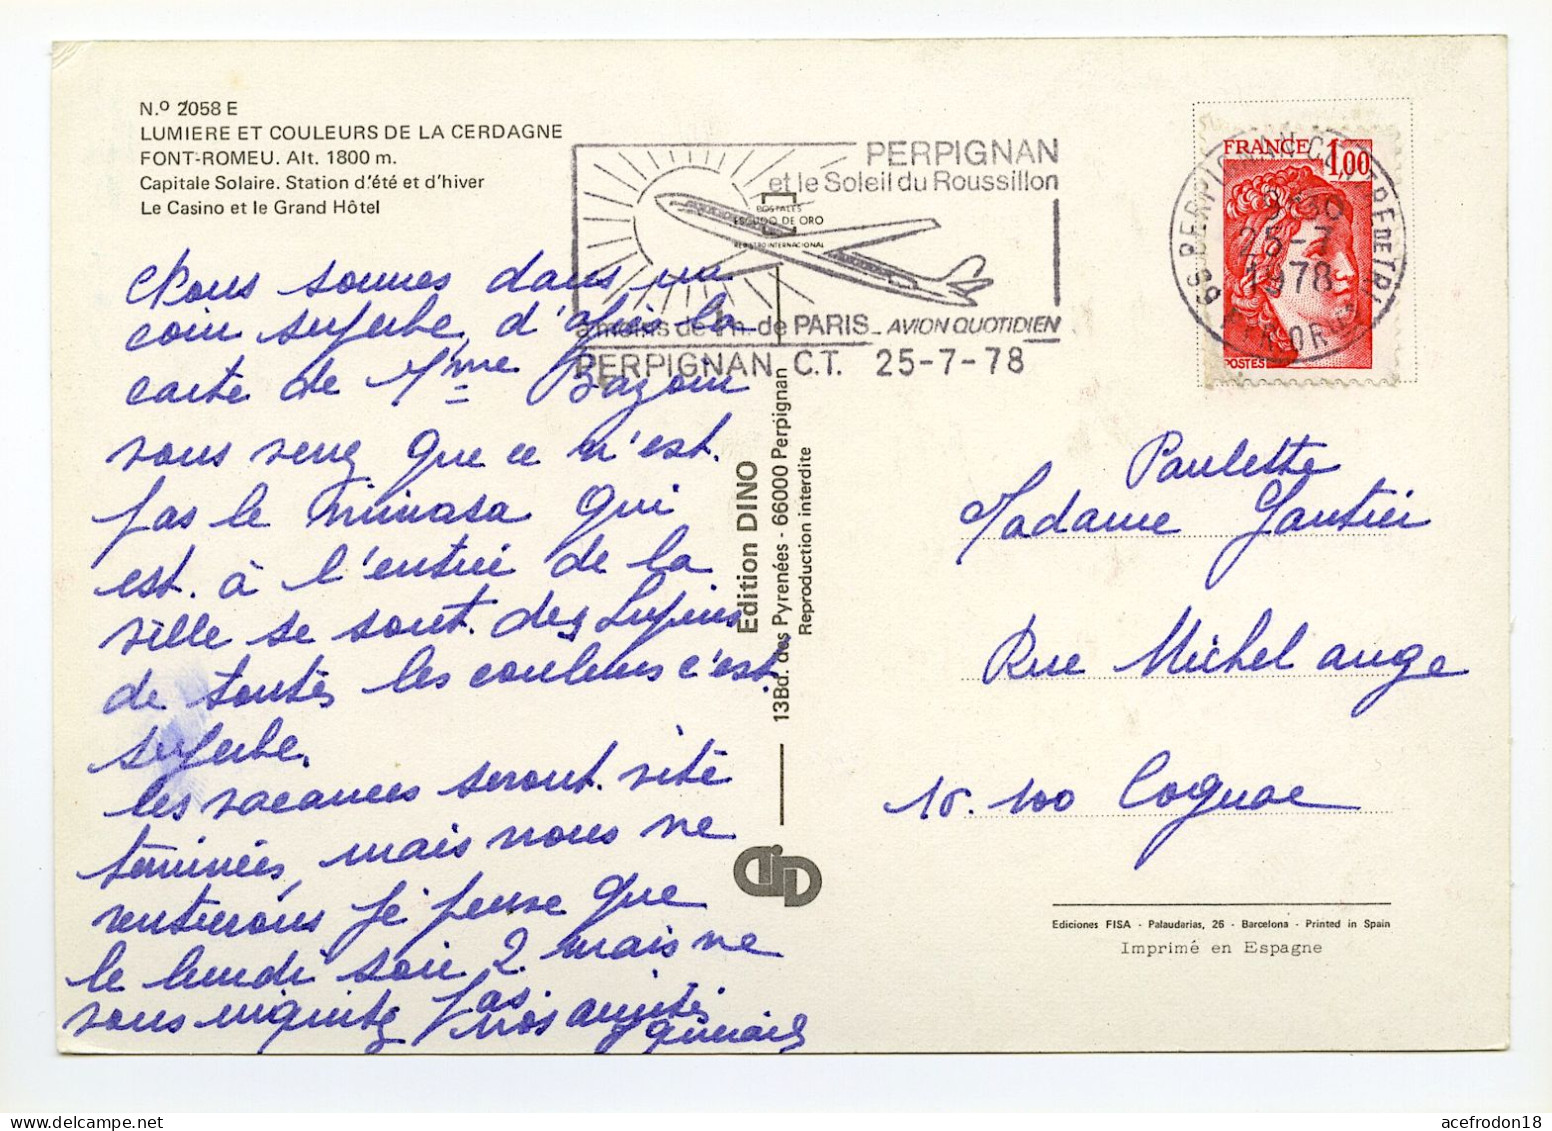 N.º 2058 E
LUMIERE ET COULEURS DE LA CERDAGNE
FONT-ROMEU. Alt. 1800 m.
Capitale Solaire. Station d'été et d'hiver
Le Casino et le Grand Hôtel
PERPIGNAN
et le Soleil du Roussillon
POSTALES
ESCUDO DE ORO
REGISTRO INTERNACIONAL
à moins de 1 h. de PARIS_ AVION QUOTIDIEN
PERPIGNAN C.T. 25-7-78
FRANCE 1,00
POSTES
25-7
1978
Nous sommes dans un
coin superbe, d'après la
carte de Mme Bazoin
vous verrez que ce n'est
pas le mimosa qui
est à l'entrée de la
ville se sont des Lupins
de toutes les couleurs c'est
superbe.
les vacances seront vite
terminées, mais nous ne
rentrerons je pense que
le lundi soir ? mais ne
vous inquiétez pas.
nos amitiés
Edition DINO
13Bd. des Pyrenées - 66000 Perpignan
Reproduction interdite
Paulette
Madame Gautier
Rue Michel ange
16.100 Cognac
Ediciones FISA - Palaudarias, 26 - Barcelona - Printed in Spain
Imprimé en Espagne
acefrodon18